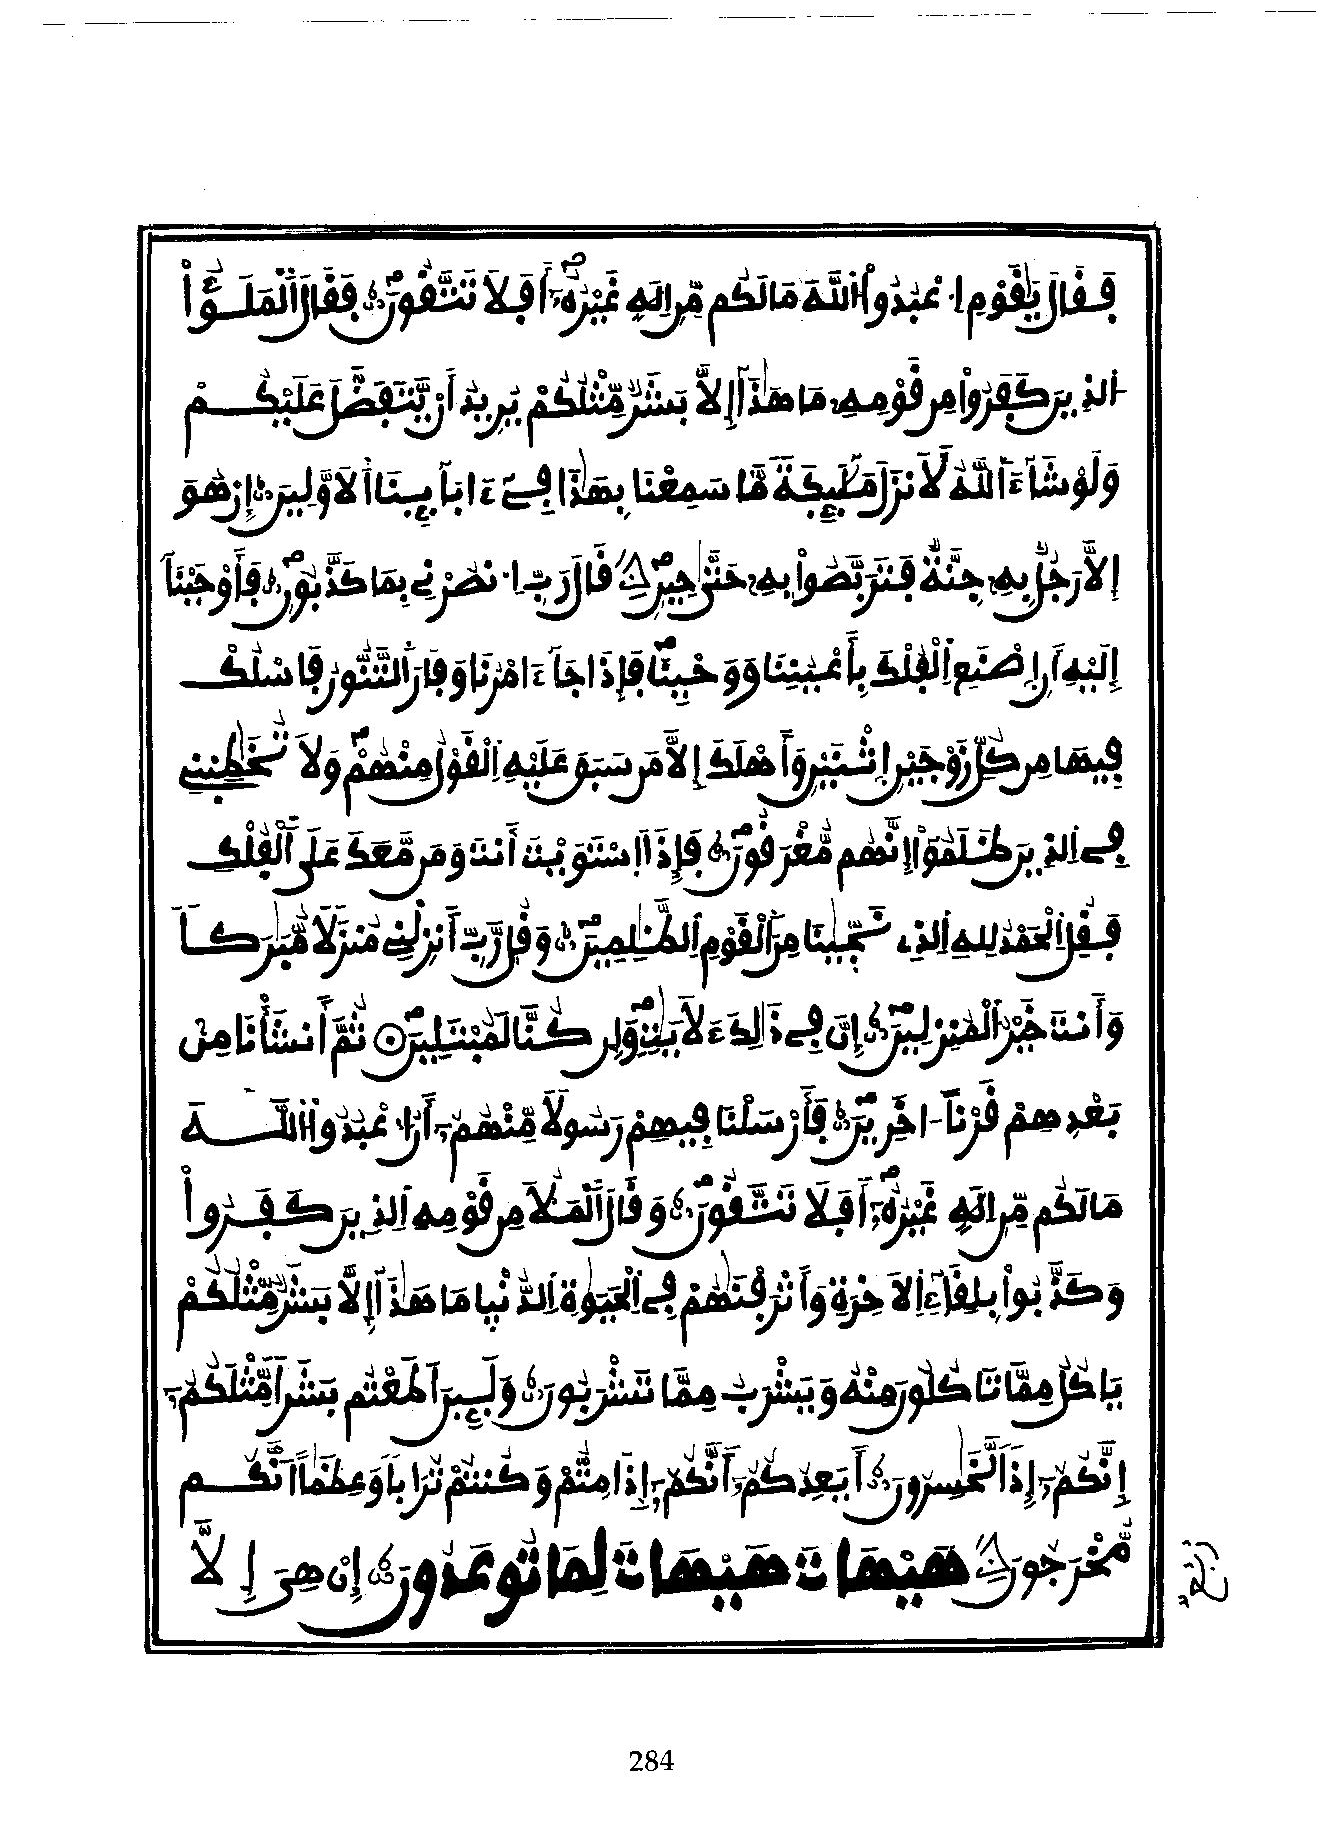 فَقَالَ يَٰقَوْمِ اِ۟عْبُدُواْ اُ۬للَّهَ مَا لَكُم مِّنِ اِلَٰهٍ غَيْرُهُۥٓ أَفَلَا تَتَّقُونَ فَقَالَ اَ۬لْمَلَؤُاْ
اُ۬لذِينَ كَفَرُواْ مِن قَوْمِهِۦ مَا هَٰذَآ إِلَّا بَشَرٌ مِّثْلُكُمْ يُرِيدُ أَنْ يَّتَفَضَّلَ عَلَيْكُمْ
وَلَوْ شَآءَ اَ۬للَّهُ لَأَنزَلَ مَلَٰٓئِكَةً مَّا سَمِعْنَا بِهَٰذَا فِےٓ ءَابَآئِنَا اَ۬لْأَوَّلِينَ إِنْ هُوَ
إِلَّا رَجُلٌ بِهِۦ جِنَّةٌ فَتَرَبَّصُواْ بِهِۦ حَتَّىٰ حِينٍ قَالَ رَبِّ اِ۟نصُرْنِے بِمَا كَذَّبُونِ فَأَوْحَيْنَآ
إِلَيْهِ أَنِ اِ۪صْنَعِ اِ۬لْفُلْكَ بِأَعْيُنِنَا وَوَحْيِنَا فَإِذَا جَآءَ امْرُنَا وَفَارَ اَ۬لتَّنُّورُ فَاسْلُكْ
فِيهَا مِن كُلِّ زَوْجَيْنِ اِ۪ثْنَيْنِ وَأَهْلَكَ إِلَّا مَن سَبَقَ عَلَيْهِ اِ۬لْقَوْلُ مِنْهُمْ وَلَا تُخَٰطِبْنِے
فِے اِ۬لذِينَ ظَلَمُوٓاْ إِنَّهُم مُّغْرَقُونَ فَإِذَا اَ۪سْتَوَيْتَ أَنتَ وَمَن مَّعَكَ عَلَى اَ۬لْفُلْكِ
فَقُلِ اِ۬لْحَمْدُ لِلهِ اِ۬لذِے نَجَّيٰنَا مِنَ اَ۬لْقَوْمِ اِ۬لظَّٰلِمِينَ وَقُل رَّبِّ أَنزِلْنِے مُنزَلًا مُّبَٰرَكاً
وَأَنتَ خَيْرُ اُ۬لْمُنزِلِينَ إِنَّ فِے ذَٰلِكَ ءَلَايَٰتٍ وَإِن كُنَّا لَمُبْتَلِينَ ثُمَّ أَنشَأْنَا مِنۢ
بَعْدِهِمْ قَرْناً اٰخَرِينَ فَأَرْسَلْنَا فِيهِمْ رَسُولًا مِّنْهُمُۥٓ أَنُ اُ۟عْبُدُواْ اُ۬للَّهَ
مَا لَكُم مِّنِ اِلَٰهٍ غَيْرُهُۥٓ أَفَلَا تَتَّقُونَ وَقَالَ اَ۬لْمَلَأُ مِن قَوْمِهِ اِ۬لذِينَ كَفَرُواْ
وَكَذَّبُواْ بِلِقَآءِ اِ۬لَاخِرَةِ وَأَتْرَفْنَٰهُمْ فِے اِ۬لْحَيَوٰةِ اِ۬لدُّنْيَا مَا هَٰذَآ إِلَّا بَشَرٌ مِّثْلُكُمْ
يَاكُلُ مِمَّا تَاكُلُونَ مِنْهُ وَيَشْرَبُ مِمَّا تَشْرَبُونَ وَلَئِنَ اَطَعْتُم بَشَراً مِّثْلَكُمُۥٓ
إِنَّكُمُۥٓ إِذاً لَّخَٰسِرُونَ أَيَعِدُكُمُۥٓ أَنَّكُمُۥٓ إِذَا مِتُّمْ وَكُنتُمْ تُرَاباً وَعِظَٰماً اَنَّكُم
مُّخْرَجُونَ هَيْهَاتَ هَيْهَاتَ لِمَا تُوعَدُونَ إِنْ هِيَ إِلَّا
ربع
284